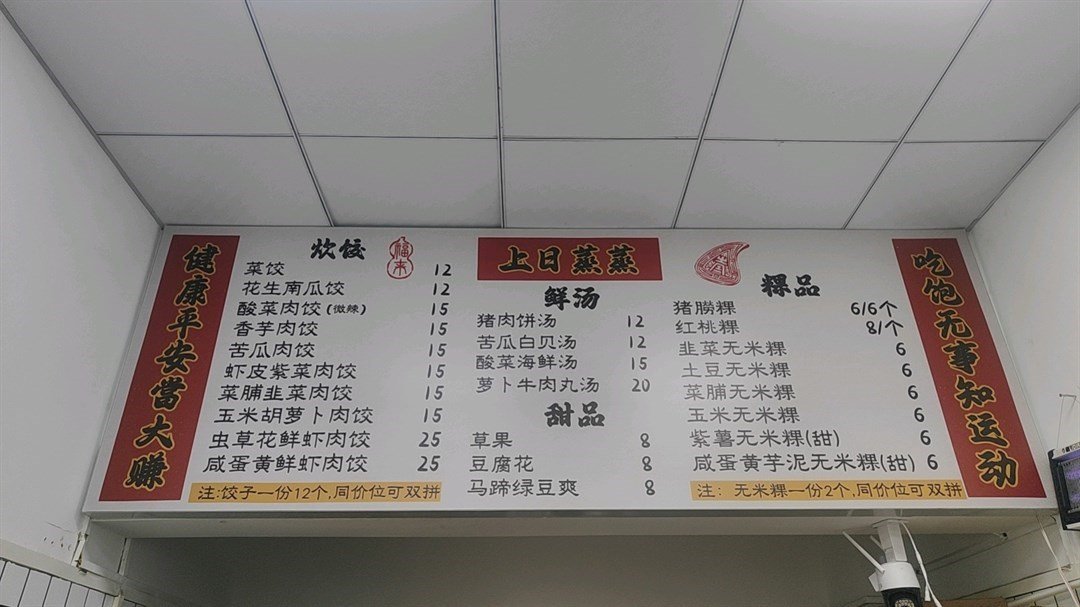 健康平安當大赚
炊饺
福来
菜饺 12
花生南瓜饺 12
酸菜肉饺(微辣) 15
香芋肉饺 15
苦瓜肉饺 15
虾皮紫菜肉饺 15
菜脯韭菜肉饺 15
玉米胡萝卜肉饺 15
虫草花鲜虾肉饺 25
咸蛋黄鲜虾肉饺 25
注:饺子一份12个,同价位可双拼
上日蒸蒸
鲜汤
猪肉饼汤 12
苦瓜白贝汤 12
酸菜海鲜汤 15
萝卜牛肉丸汤 20
甜品
草果 8
豆腐花 8
马蹄绿豆爽 8
粿品
猪朥粿 6/6个
红桃粿 8/个
韭菜无米粿 6
土豆无米粿 6
菜脯无米粿 6
玉米无米粿 6
紫薯无米粿(甜) 6
咸蛋黄芋泥无米粿(甜) 6
注：无米粿一份2个,同价位可双拼
吃饱无事知运动